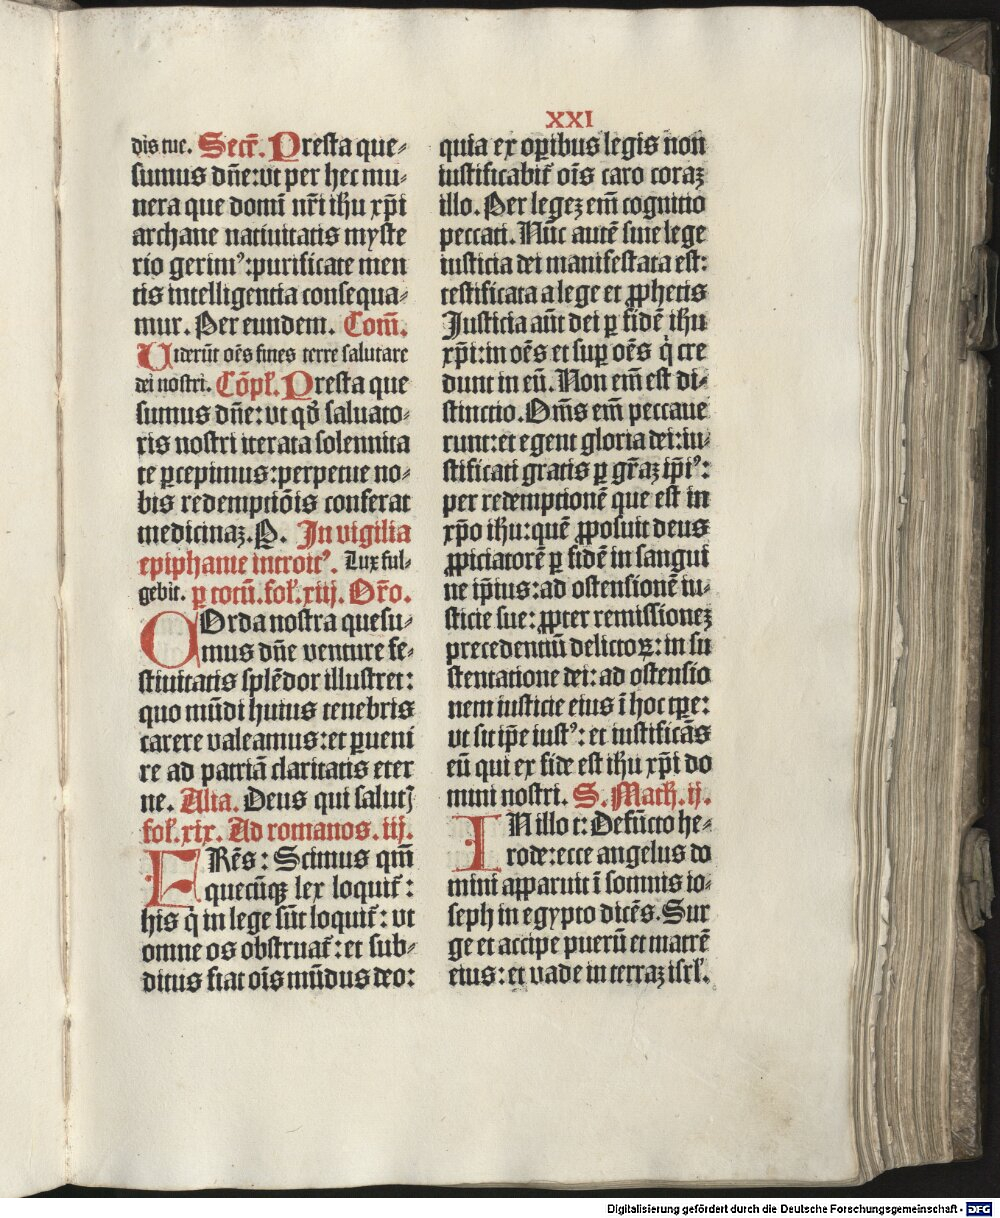 XXI
dis tue. Secr̃. Presta que⸗
sumus dn̄e: vt per hec mu⸗
nera que domī nr̄i ih̄u xp̄i
archane natiuitatis myste
rio gerimꝰ: purificate men
tis intelligentia consequa⸗
mur. Per eundem. Com̄.
Uiderūt oēs fines terre salutare
dei nostri. Cōpl̄. Presta que
sumus dn̄e: vt qd̄ saluato⸗
ris nostri iterata solennita
te ꝑcepimus: perpetue no⸗
bis redemptiōis conferat
medicinaꝫ. P. In vigilia
epiphanie introitꝰ. Lux ful⸗
gebit. ꝑ totū. fol̄. xiij. Or̄o.
COrda nostra quesu⸗
mus dn̄e venture fe⸗
stiuitatis splēdor illustret:
quo mūdi huius tenebris
carere valeamus: et ꝑueni
re ad patriā claritatis eter
ne. Alia. Deus qui salutꝭ
fol̄. xix. Ad romanos. iij.
FRēs: Scimus qm̄
quecūqꝫ lex loquit᷑:
his q̇ in lege sūt loquit᷑: vt
omne os obstruat᷑: et sub⸗
ditus fiat oīs mūdus deo:
quia ex oꝑibus legis non
iustificabit᷑ oīs caro coraꝫ
illo. Per legeꝫ em̄ cognitio
peccati. Nūc autē sine lege
iusticia dei manifestata est:
testificata a lege et ꝓphetis
Justicia aūt dei ꝑ fidē ih̄u
xp̄i: in oēs et suꝑ oēs q̇ cre
dunt in eū. Non em̄ est di⸗
stinctio. Om̄s em̄ peccaue
runt: et egent gloria dei: iu⸗
stificati gratis ꝑ gr̄aꝫ ip̄iꝰ:
per redemptionē que est in
xp̄o ih̄u: quē ꝓposuit deus
ꝓpiciatorē ꝑ fidē in sangui
ne ip̄ius: ad ostensionē iu⸗
sticie sue: ꝓpter remissioneꝫ
precedentiū delictoꝝ: in su
stentatione dei: ad ostensio
nem iusticie eius ī hoc tꝑe:
vt sit ip̄e iustꝰ: et iustificās
eū qui ex fide est ih̄u xp̄i do
mini nostri. S. Math. ij.
IN illo t: Defūcto he⸗
rode: ecce angelus do
mini apparuit ī somnis io⸗
seph in egypto dicēs. Sur
ge et accipe puerū et matrē
eius: et vade in terraꝫ isrl̄.
Digitalisierung gefördert durch die Deutsche Forschungsgemeinschaft - DFG